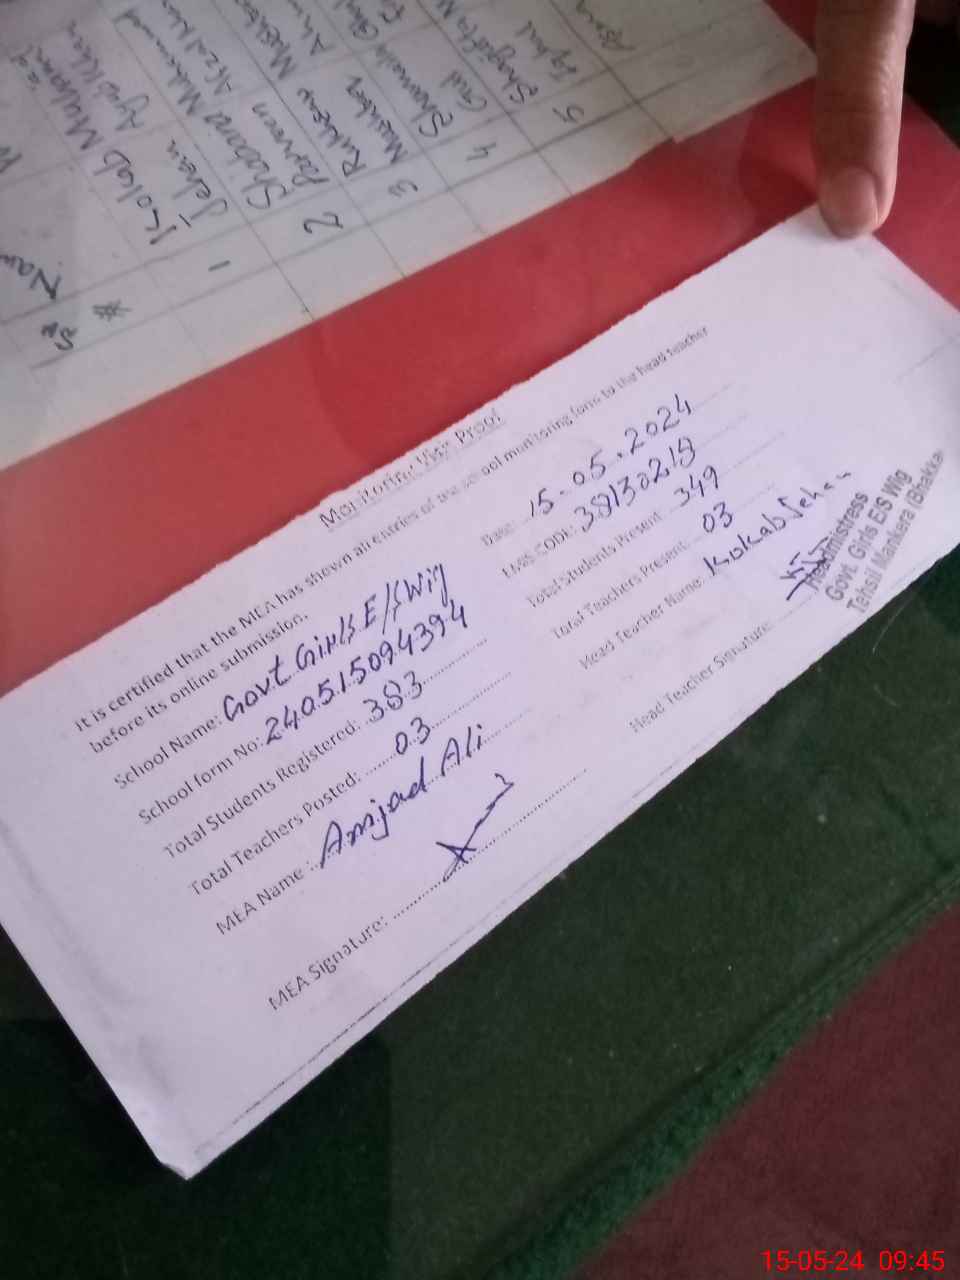 Sr
#
Nam
1
Kokab
Jehan
2
Shabana
Parveen
3
Rukhsar
4
Gul
5
Monitoring Visit Proof
It is certified that the MEA has shown all entries of the school monitoring form to the head teacher
before its online submission.
School Name: Govt Girls E/S Wig
Date: 15-05-2024
School form No: 240515094394
EMIS CODE: 38130219
Total Students Registered: 383
Total Students Present: 349
Total Teachers Posted: 03
Total Teachers Present: 03
MEA Name: Amjad Ali
Head Teacher Name: Kokab Jehan
MEA Signature:
Head Teacher Signature:
Headmistress
Govt. Girls E/S Wig
Tehsil Mankera (Bhakka
15-05-24 09:45